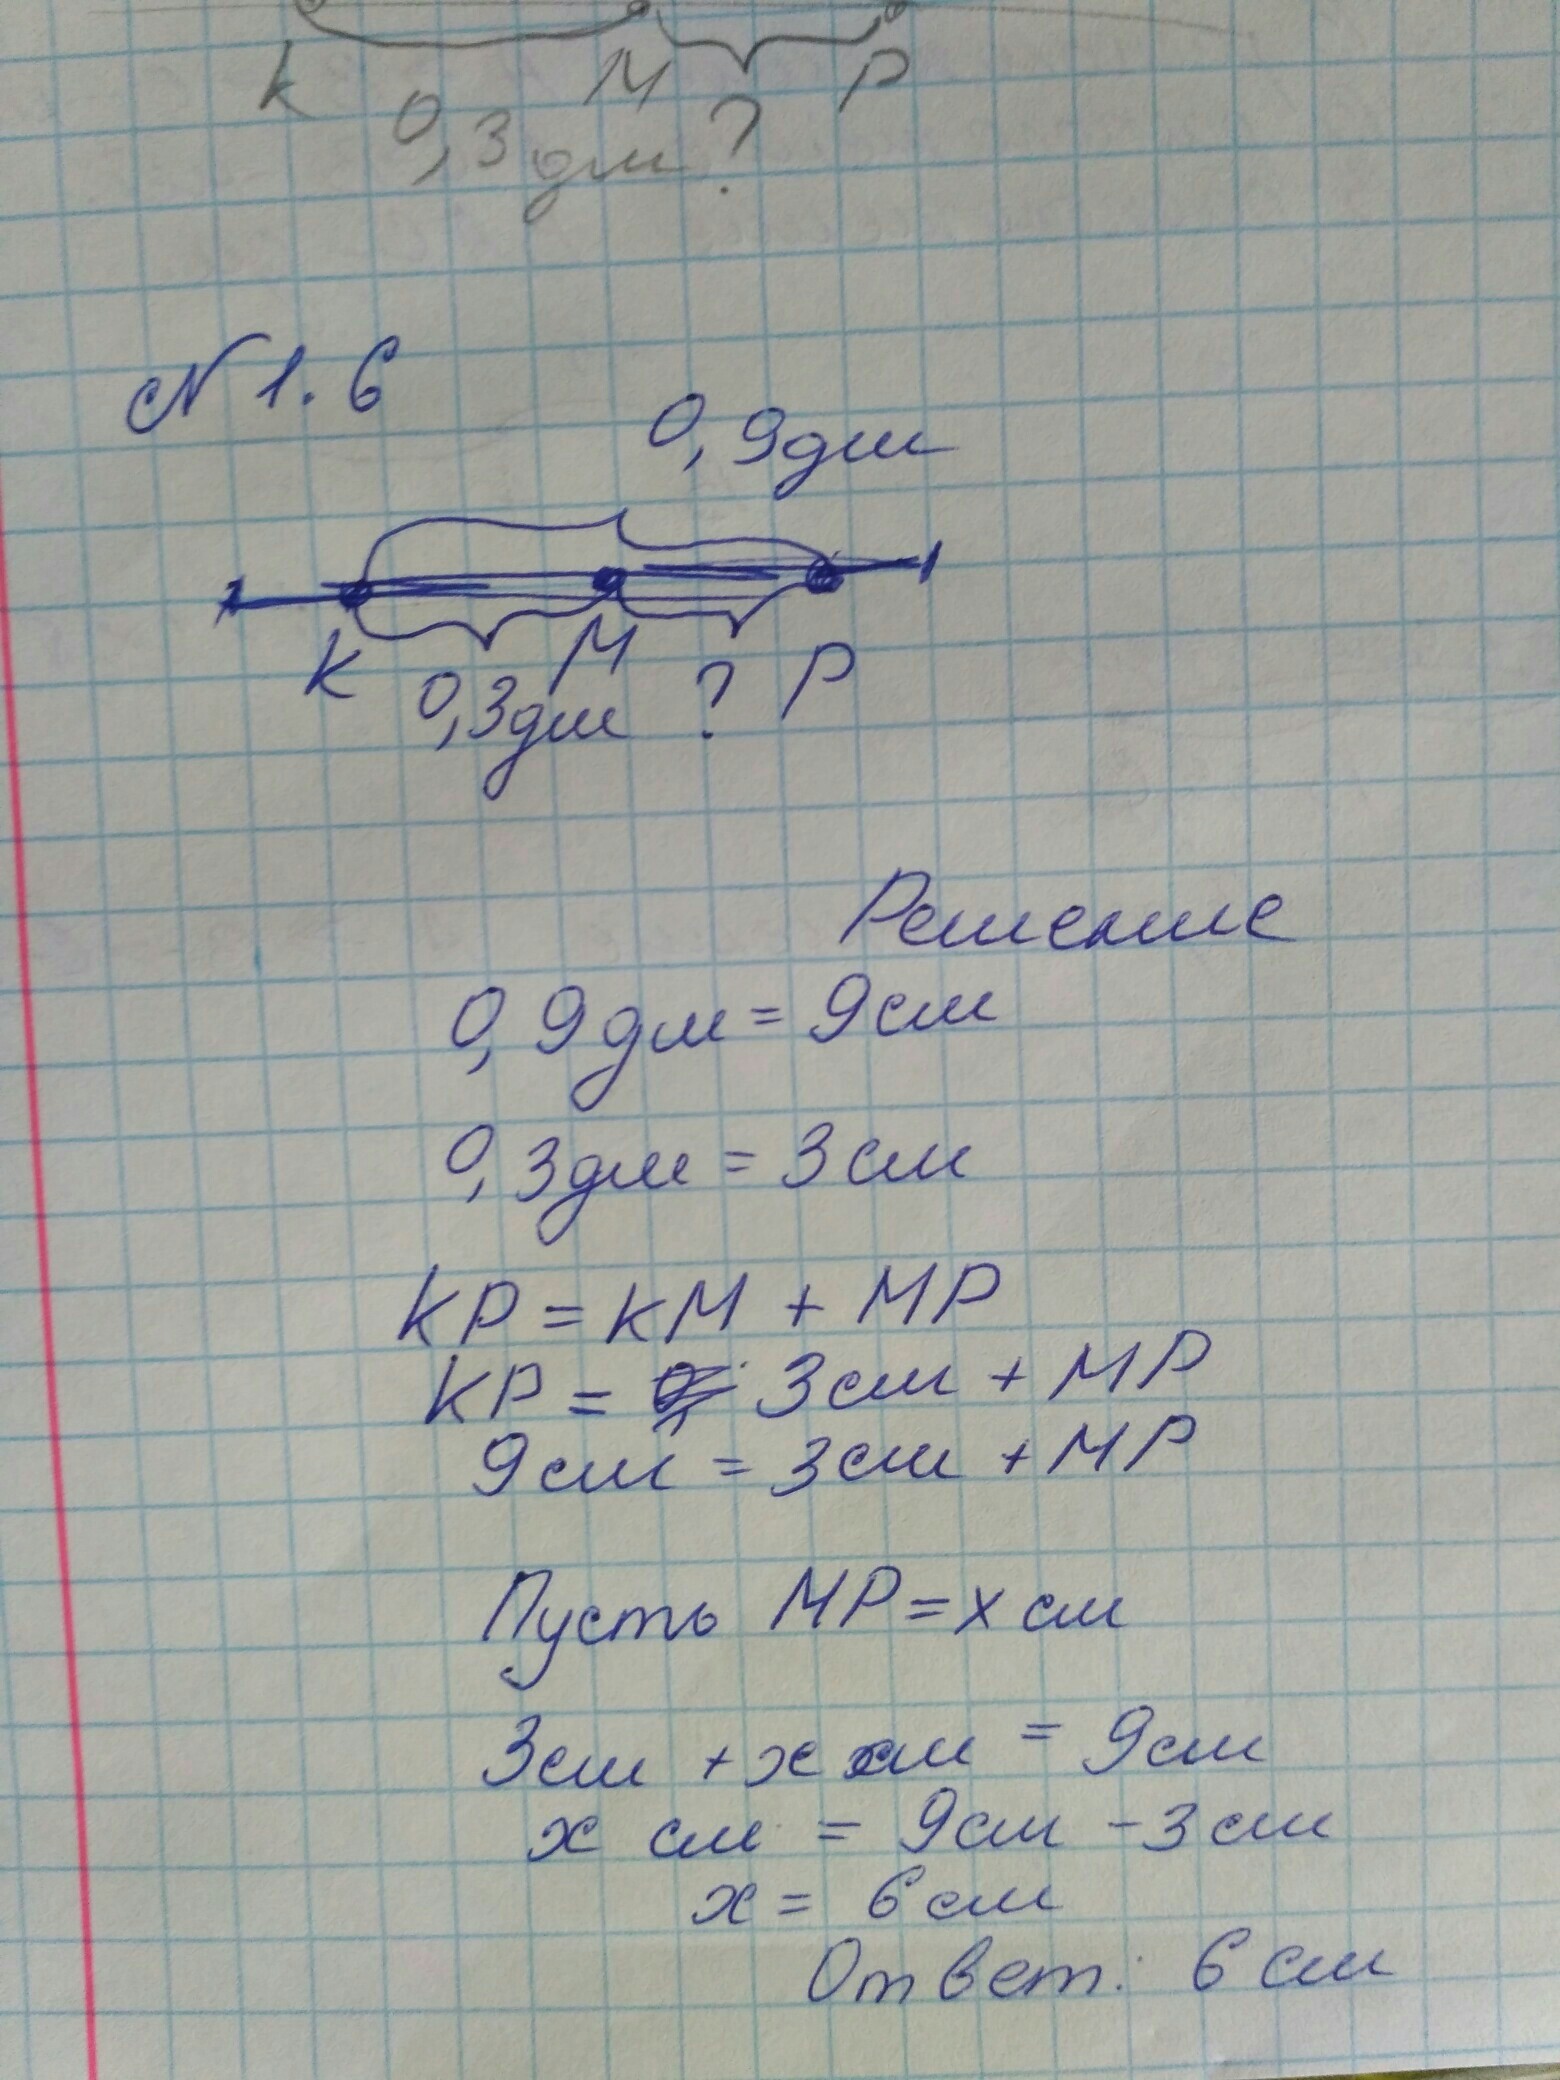 K M P
0,3 дм ?
N 1.6
0,9дм
K M P
0,3дм ?
Решение
0,9 дм = 9 см
0,3 дм = 3 см
KP = KM + MP
KP = 3 см + MP
9 см = 3 см + MP
Пусть MP = x см
3 см + x см = 9 см
x см = 9 см - 3 см
x = 6 см
Ответ: 6 см